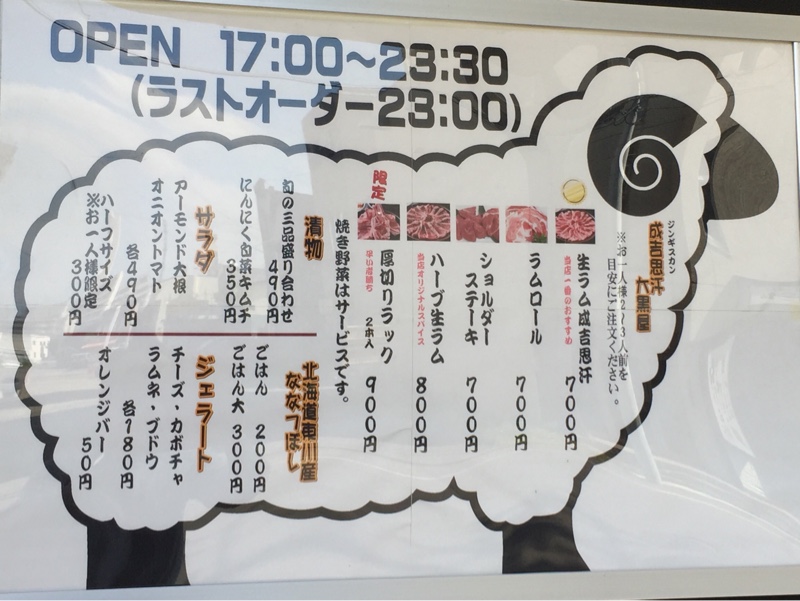 OPEN 17:00～23:30
(ラストオーダー23:00)
ジンギスカン
成吉思汗
大黒屋
※お一人様2～3人前を
目安にご注文ください。
生ラム成吉思汗 700円
当店一番のおすすめ
ラムロール 700円
ショルダー
ステーキ 700円
ハーブ生ラム 800円
当店オリジナルスパイス
限定
厚切りラック 2本入 900円
早い者勝ち
焼き野菜はサービスです。
漬物
旬の三品盛り合わせ
490円
にんにく白菜キムチ
350円
サラダ
アーモンド大根
オニオントマト
各490円
ハーフサイズ
※お一人様限定
300円
北海道東川産
ななつぼし
ごはん 200円
ごはん大 300円
ジェラート
チーズ・カボチャ
ラムネ・ブドウ
各180円
オレンジバー
50円